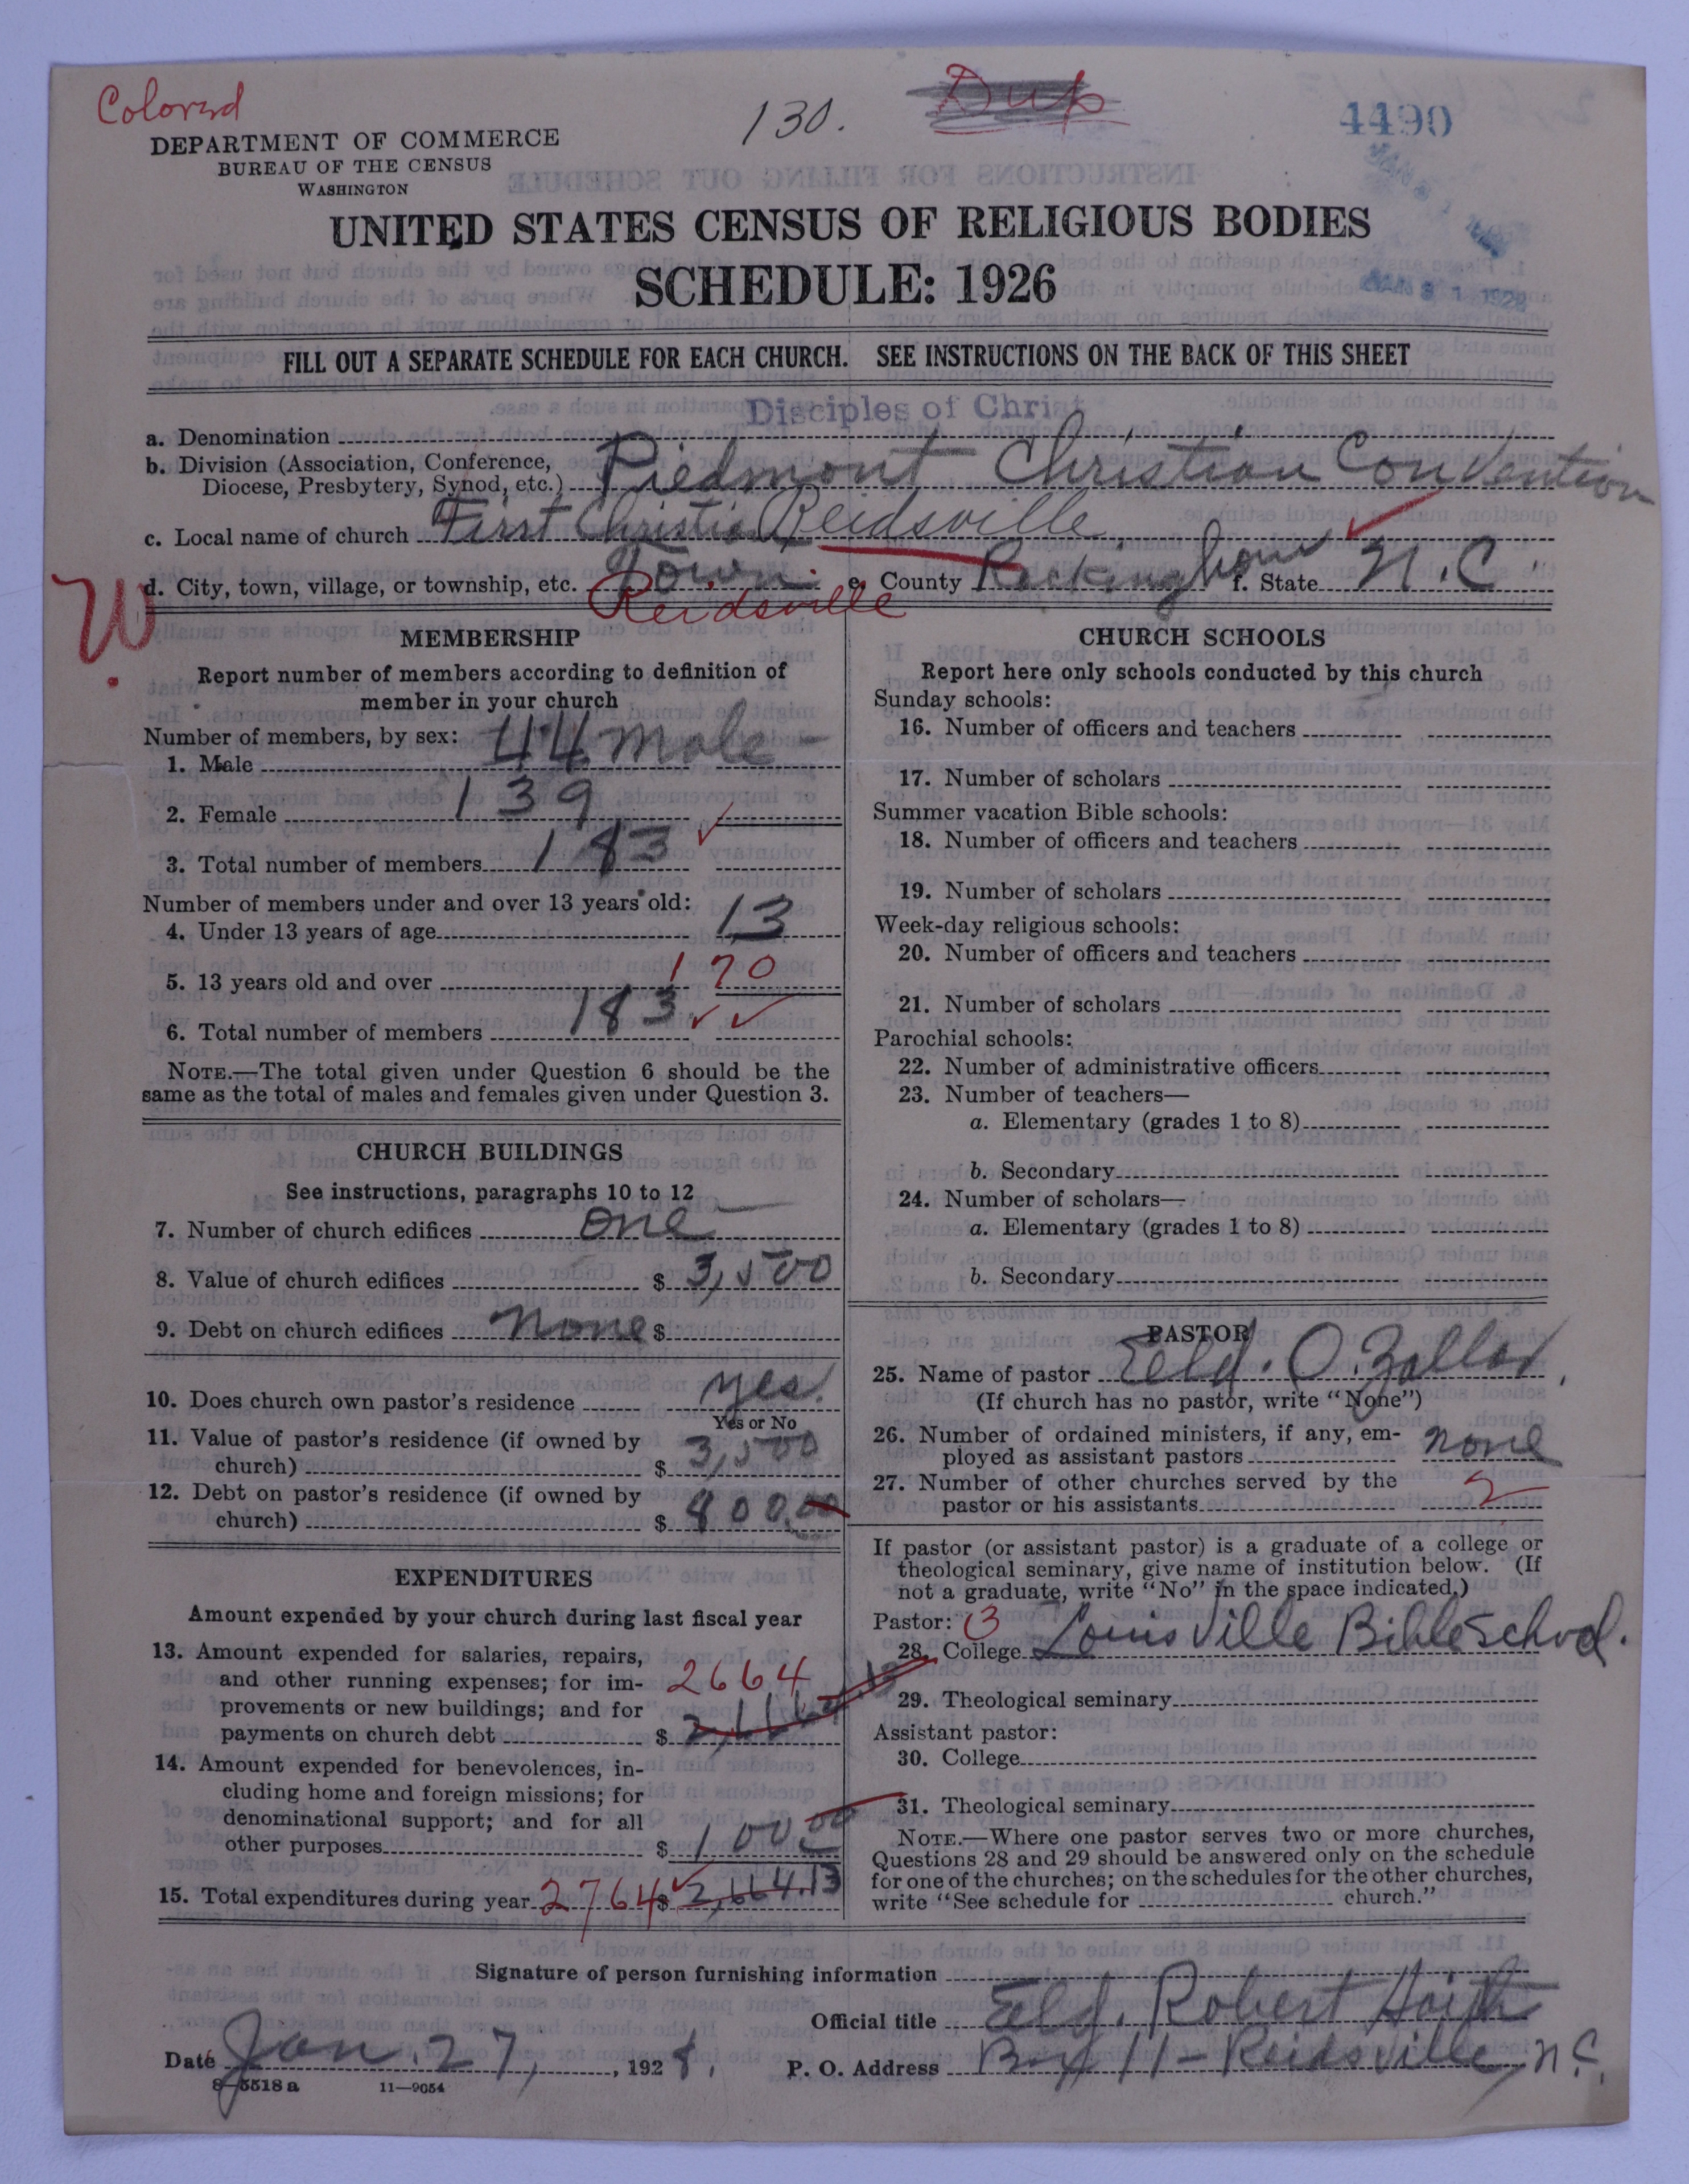 Colored
130.
Dup
4490
DEPARTMENT OF COMMERCE
BUREAU OF THE CENSUS
WASHINGTON
UNITED STATES CENSUS OF RELIGIOUS BODIES
SCHEDULE: 1926
JAN 31 1928
FILL OUT A SEPARATE SCHEDULE FOR EACH CHURCH. SEE INSTRUCTIONS ON THE BACK OF THIS SHEET
Disciples of Christ
a. Denomination
b. Division (Association, Conference, Diocese, Presbytery, Synod, etc.) Piedmont Christian Convention
c. Local name of church First Christian Reidsville
W.
d. City, town, village, or township, etc. Town Reidsville e. County Rockingham f. State N.C.
MEMBERSHIP
Report number of members according to definition of
member in your church
Number of members, by sex:
1. Male 44 male
2. Female 139
3. Total number of members 183
Number of members under and over 13 years old:
4. Under 13 years of age 13
5. 13 years old and over 170
6. Total number of members 183
NOTE.—The total given under Question 6 should be the
same as the total of males and females given under Question 3.
CHURCH BUILDINGS
See instructions, paragraphs 10 to 12
7. Number of church edifices one
8. Value of church edifices $ 3,500
9. Debt on church edifices none $
10. Does church own pastor's residence yes.
Yes or No
11. Value of pastor's residence (if owned by
church) $ 3,500
12. Debt on pastor's residence (if owned by
church) $ 800.00
EXPENDITURES
Amount expended by your church during last fiscal year
13. Amount expended for salaries, repairs,
and other running expenses; for im-
provements or new buildings; and for
payments on church debt $ 2664
14. Amount expended for benevolences, in-
cluding home and foreign missions; for
denominational support; and for all
other purposes $ 100.00
15. Total expenditures during year 2764 $ 2,664.13
CHURCH SCHOOLS
Report here only schools conducted by this church
Sunday schools:
16. Number of officers and teachers
17. Number of scholars
Summer vacation Bible schools:
18. Number of officers and teachers
19. Number of scholars
Week-day religious schools:
20. Number of officers and teachers
21. Number of scholars
Parochial schools:
22. Number of administrative officers
23. Number of teachers—
a. Elementary (grades 1 to 8)
b. Secondary
24. Number of scholars—
a. Elementary (grades 1 to 8)
b. Secondary
PASTOR
25. Name of pastor Eld. O. Zollar
(If church has no pastor, write "None")
26. Number of ordained ministers, if any, em-
ployed as assistant pastors none
27. Number of other churches served by the
pastor or his assistants 2
If pastor (or assistant pastor) is a graduate of a college or
theological seminary, give name of institution below. (If
not a graduate, write "No" in the space indicated.)
Pastor: 3
28. College Louisville Bible School.
29. Theological seminary
Assistant pastor:
30. College
31. Theological seminary
NOTE.—Where one pastor serves two or more churches,
Questions 28 and 29 should be answered only on the schedule
for one of the churches; on the schedules for the other churches,
write "See schedule for church."
Signature of person furnishing information
Official title Eld. Robert Haith
Date Jan. 27, 1928. P. O. Address Box 11 - Reidsville, N.C.
8—5518 a 11—9054